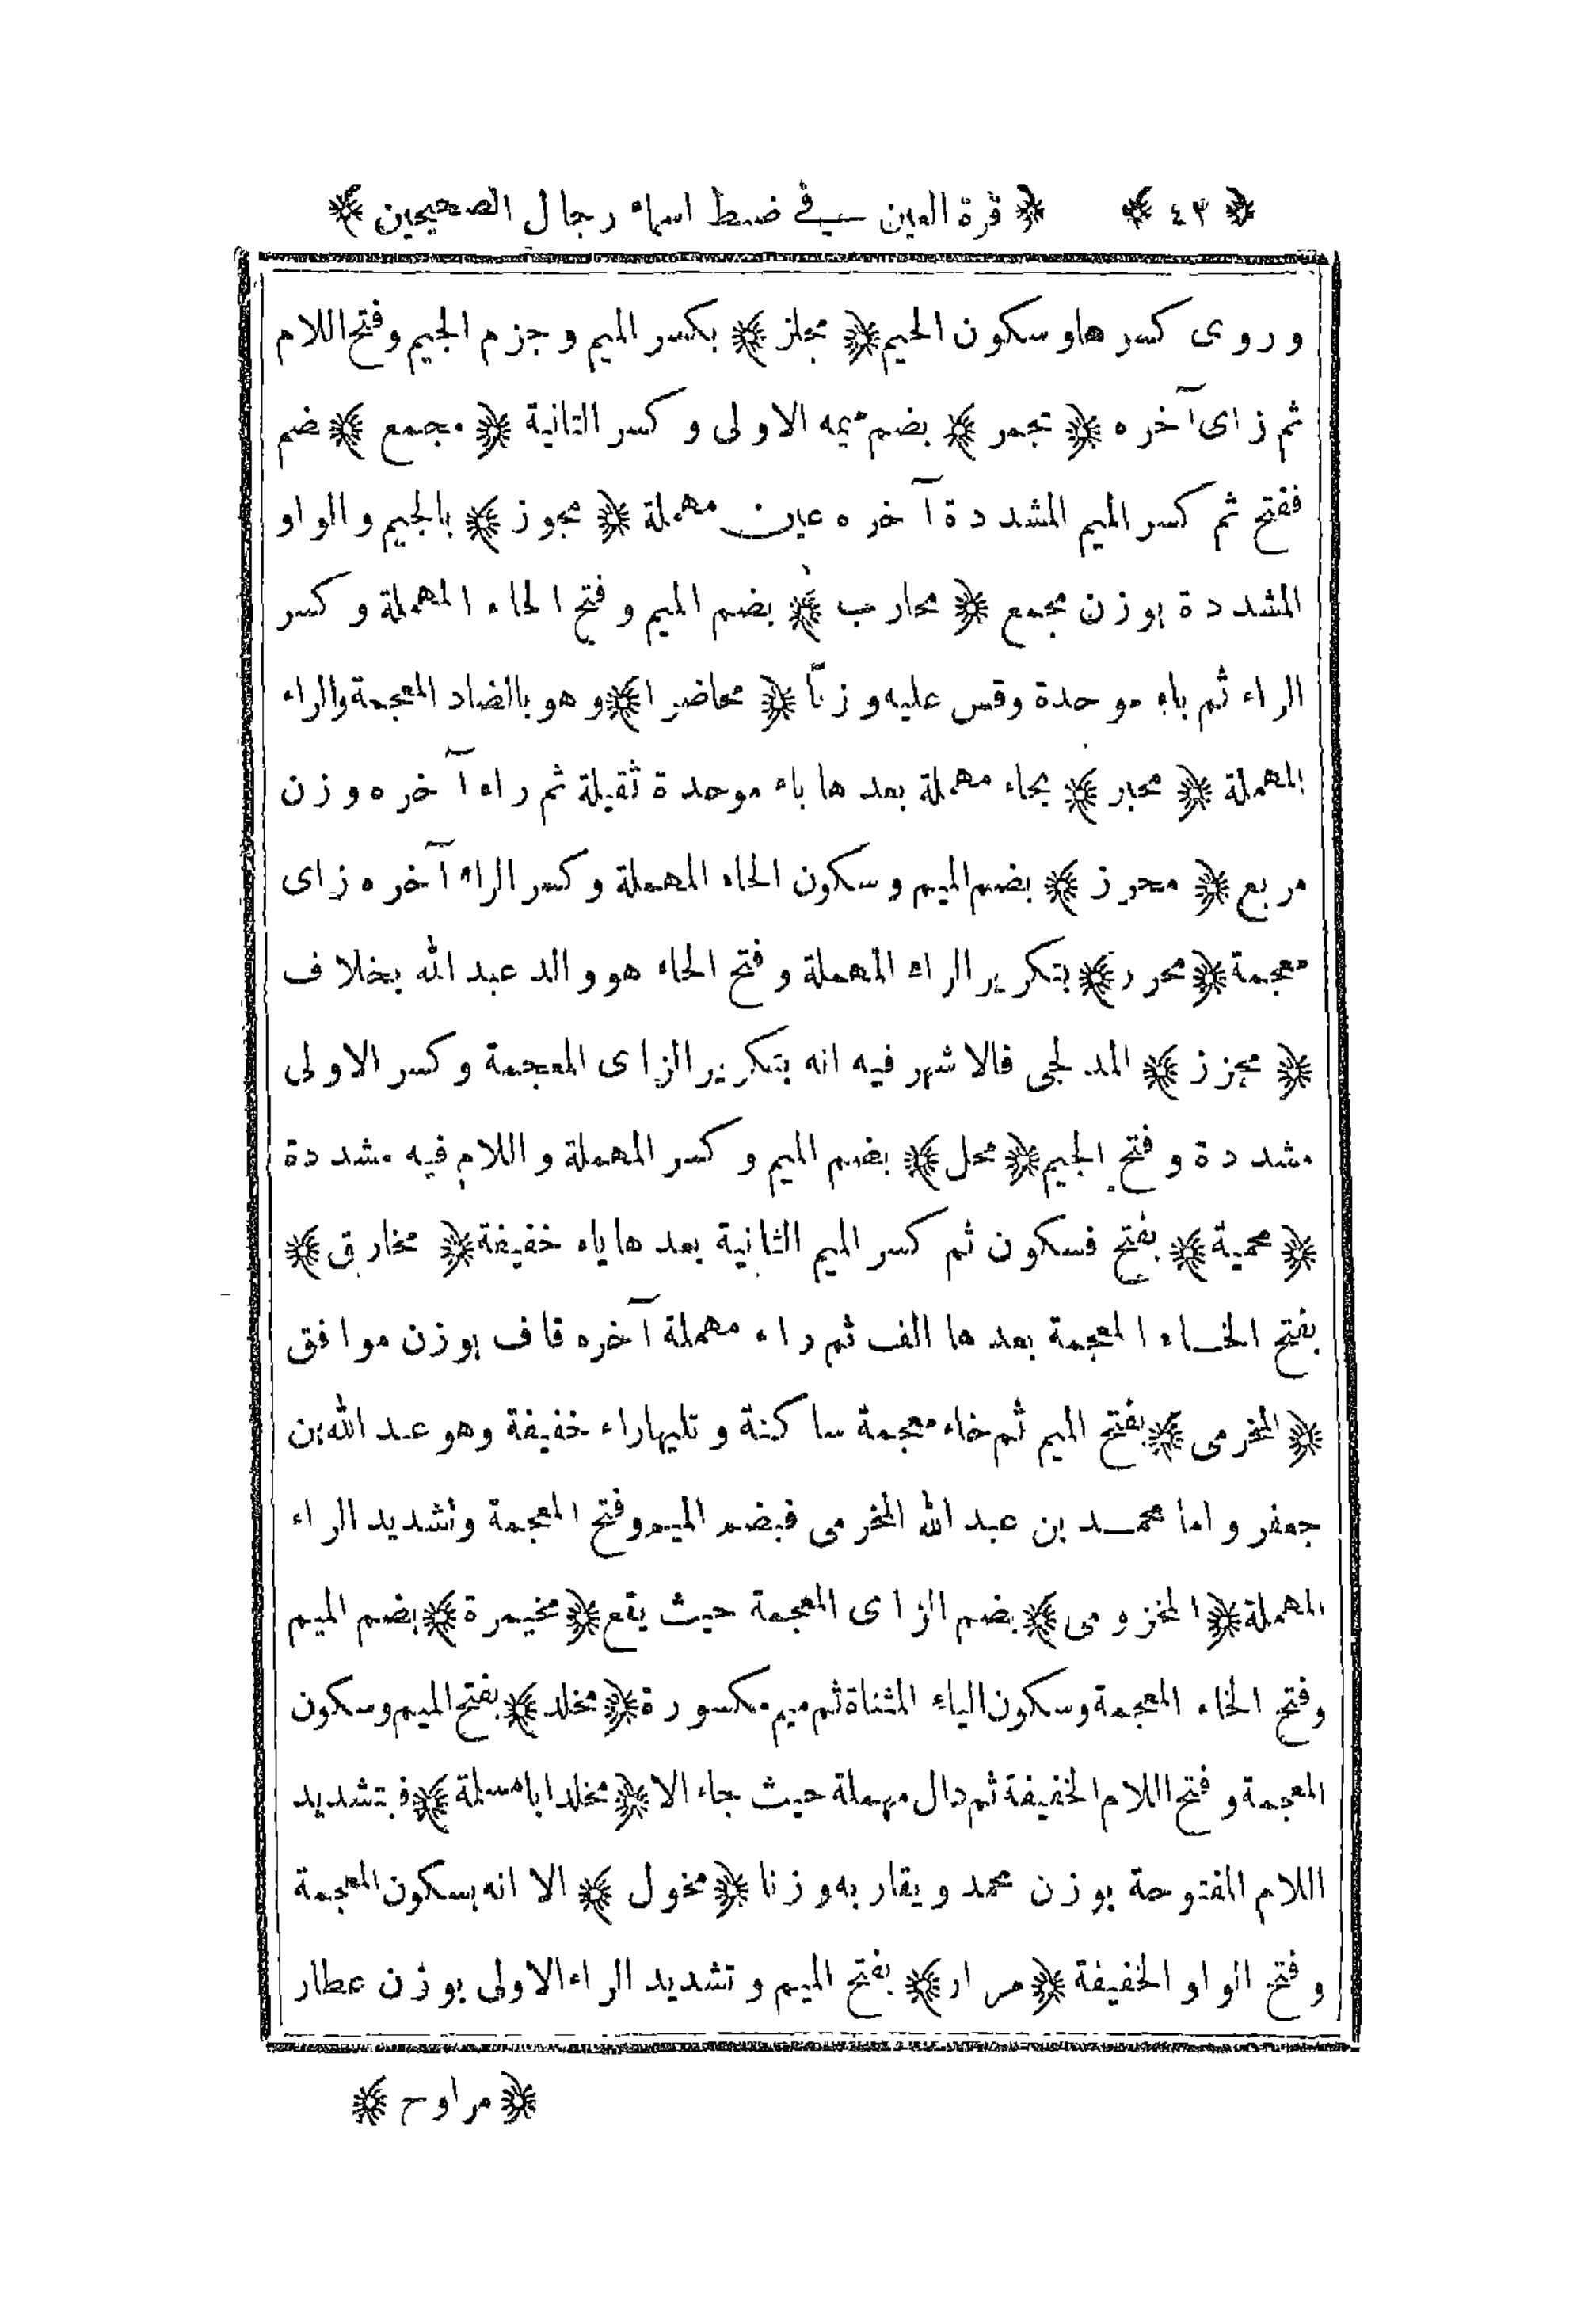 ﴿ ٤٣ ﴾ ﴿ قرة العين في ضبط اسماء رجال الصحيحين ﴾
وروى كسرها وسكون الجيم ﴿ مجلز ﴾ بكسر الميم وجزم الجيم وفتح اللام
ثم زاى آخره ﴿ مجمر ﴾ بضم ميمه الاولى وكسر الثانية ﴿ مجمع ﴾ ضم
ففتح ثم كسر الميم المشددة آخره عين مهملة ﴿ مجوز ﴾ بالجيم والواو
المشددة بوزن مجمع ﴿ محارب ﴾ بضم الميم وفتح الحاء المهملة وكسر
الراء ثم باء موحدة وقس عليه وزنًا ﴿ محاضرا ﴾ وهو بالضاد المعجمة والراء
المهملة ﴿ محبر ﴾ بحاء مهملة بعدها باء موحدة ثقيلة ثم راء آخره وزن
مربع ﴿ محرز ﴾ بضم الميم وسكون الحاء المهملة وكسر الراء آخره زاى
معجمة ﴿ محرر ﴾ بتكرير الراء المهملة وفتح الحاء هو والد عبد الله بخلاف
﴿ مجزز ﴾ المدلجى فالاشهر فيه انه بتكرير الزاى المعجمة وكسر الاولى
مشددة وفتح الجيم ﴿ محل ﴾ بضم الميم وكسر المهملة واللام فيه مشددة
﴿ محمية ﴾ بفتح فسكون ثم كسر الميم الثانية بعدها ياء خفيفة ﴿ مخارق ﴾
بفتح الخاء المعجمة بعدها الف ثم راء مهملة آخره قاف بوزن موافق
﴿ المخرمى ﴾ بفتح الميم ثم خاء معجمة ساكنة وتليها راء خفيفة وهو عبد الله بن
جعفر واما محمد بن عبد الله المخرمى فبضم الميم وفتح المعجمة وتشديد الراء
المهملة ﴿ المخزومى ﴾ بضم الزاى المعجمة حيث يقع ﴿ مخيمرة ﴾ بضم الميم
وفتح الخاء المعجمة وسكون الياء المثناة ثم ميم مكسورة ﴿ مخلد ﴾ بفتح الميم وسكون
المعجمة وفتح اللام الخفيفة ثم دال مهملة حيث جاء الا ﴿ مخلدا ابا مسلمة ﴾ فبتشديد
اللام المفتوحة بوزن محمد ويقاربه وزنا ﴿ مخول ﴾ الا انه بسكون المعجمة
وفتح الواو الخفيفة ﴿ مرار ﴾ بفتح الميم وتشديد الراء الاولى بوزن عطار
﴿ مراوح ﴾